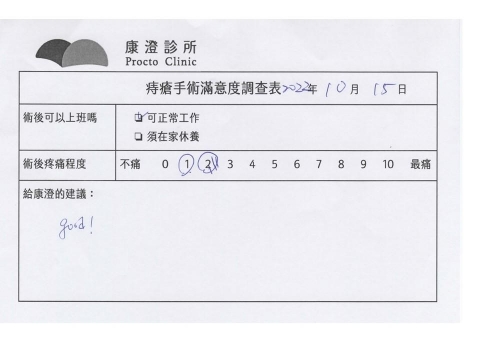 康澄診所
Procto Clinic
痔瘡手術滿意度調查表 2022年 10月 15日
術後可以上班嗎
☑可正常工作
☐須在家休養
術後疼痛程度 不痛 0 1 2 3 4 5 6 7 8 9 10 最痛
給康澄的建議：
good!